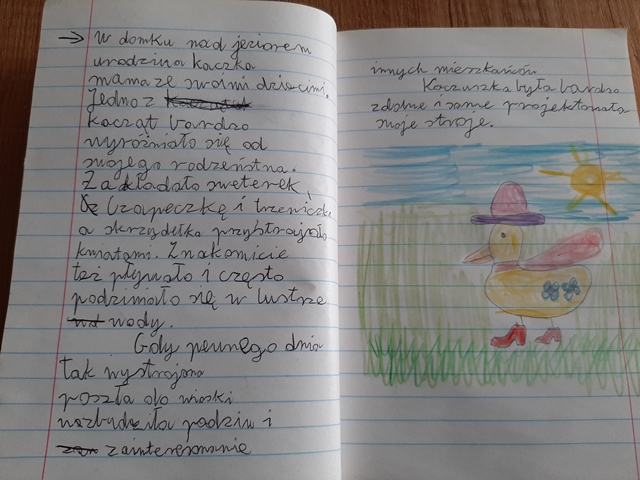 → W domku nad jeziorem
urodziła kaczka
mama ze swoimi dziećmi.
Jedno z
kacząt bardzo
wyróżniało się od
swojego rodzeństwa.
Zakładało sweterek,
czapeczkę i trzewiczki
a skrzydełka przystrajało
kwiatami. Znakomicie
też pływało i często
podziwiało się w lustrze
wody.
Gdy pewnego dnia
tak wystrojona
poszła do wioski
wzbudziła podziw i
zainteresowanie
innych mieszkańców.
Kaczuszka była bardzo
zdolna i sama projektowała
swoje stroje.